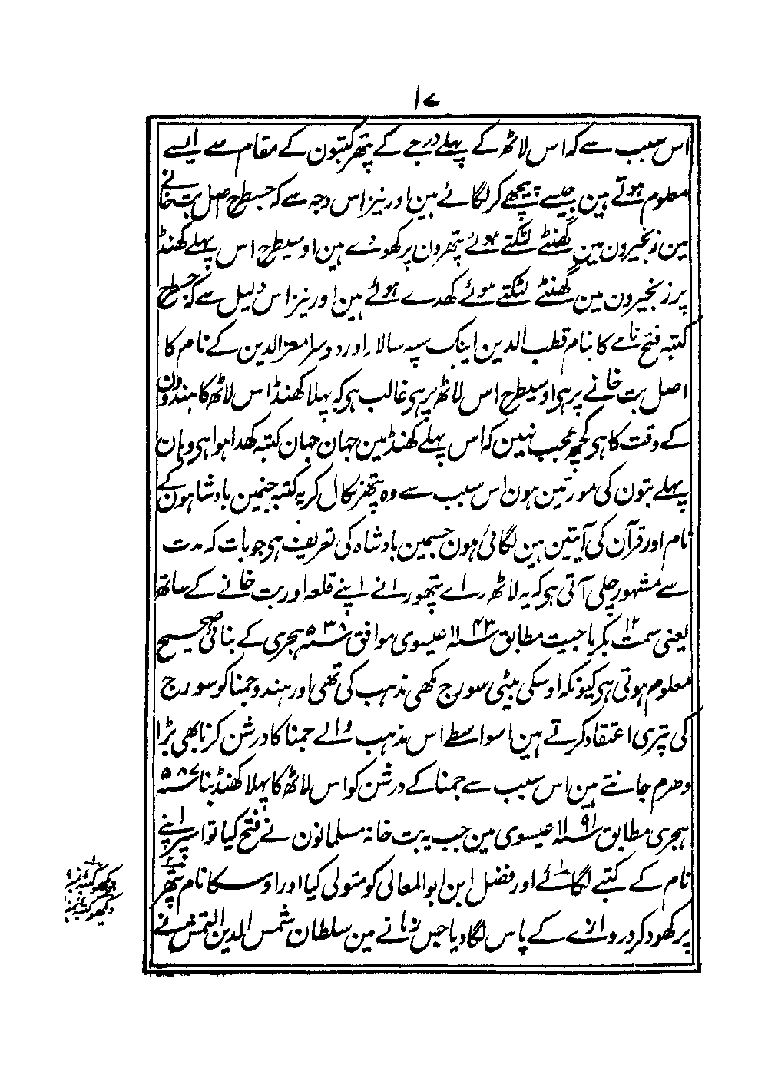 ۱۷
اس سبب سے کہ اس لاٹھ کے پہلے درجے کے پتھر کتبون کے مقام سے ایسے
معلوم ہوتے ہین جیسے پیچھے کر لگائے ہین اور نیز اس وجہ سے کہ جسطرح اصل بت خانے
مین زنجیرون مین گھنٹے لٹکتے ہوئے پتھرون پر کھودے ہین اوسیطرح اس پہلے کھنڈ
پر زنجیرون مین گھنٹے لٹکتے ہوئے کھدے ہوئے ہین اور نیز اس دلیل سے کہ جسطرح
کتبہ فتح نامے کا نام قطب الدین ایبک سپہ سالار اور دوسرا معز الدین کے نام کا
اصل بت خانے پر ہی اوسیطرح اس لاٹھ پر ہی غالب ہی کہ پہلا کھنڈ اس لاٹھ کا ہندوون
کے وقت کا ہی کچھ عجب نہین کہ اس پہلے کھنڈ مین جہان جہان کتبہ کھدا ہوا ہی وہان
پہلے بتون کی مورتین ہون اس سبب سے وہ پتھر نکال کر یہ کتبہ جنمین بادشاہون کے
نام اور قرآن کی آیتین ہین لگائی ہون جسمین بادشاہ کی تعریف ہی جو بات کہ مدت
سے مشہور چلی آتی ہی کہ یہ لاٹھ رائے پتھورا نے اپنے قلعہ اور بت خانے کے ساتھ
یعنی سمت بکرماجیت مطابق ۱۱۴۳ عیسوی موافق ۵۳۸ ہجری کے بنائی صحیح
معلوم ہوتی ہی کیونکہ اوسکی بیٹی سورج مکھی مذہب کی تھی اور ہندو جمنا کو سورج
کی پتری اعتقاد کرتے ہین اسواسطے اس مذہب والے جمنا کا درشن کرنا بھی بڑا
دھرم جانتے ہین اس سبب سے جمنا کے درشن کو اس لاٹھ کا پہلا کھنڈ بنا ۵۸۷
ہجری مطابق ۱۱۹۱ عیسوی مین جب یہ بت خانہ مسلمانون نے فتح کیا تو اسپر اپنے
نام کے کتبے لگائے اور فضل ابن ابو المعالی کو متولی کیا اور اوسکا نام پتھر
پر کھود کر دروازے کے پاس لگا دیا جس زمانے مین سلطان شمس الدین التمش نے
دیکھو کتبہ
دیکھو کتبہ